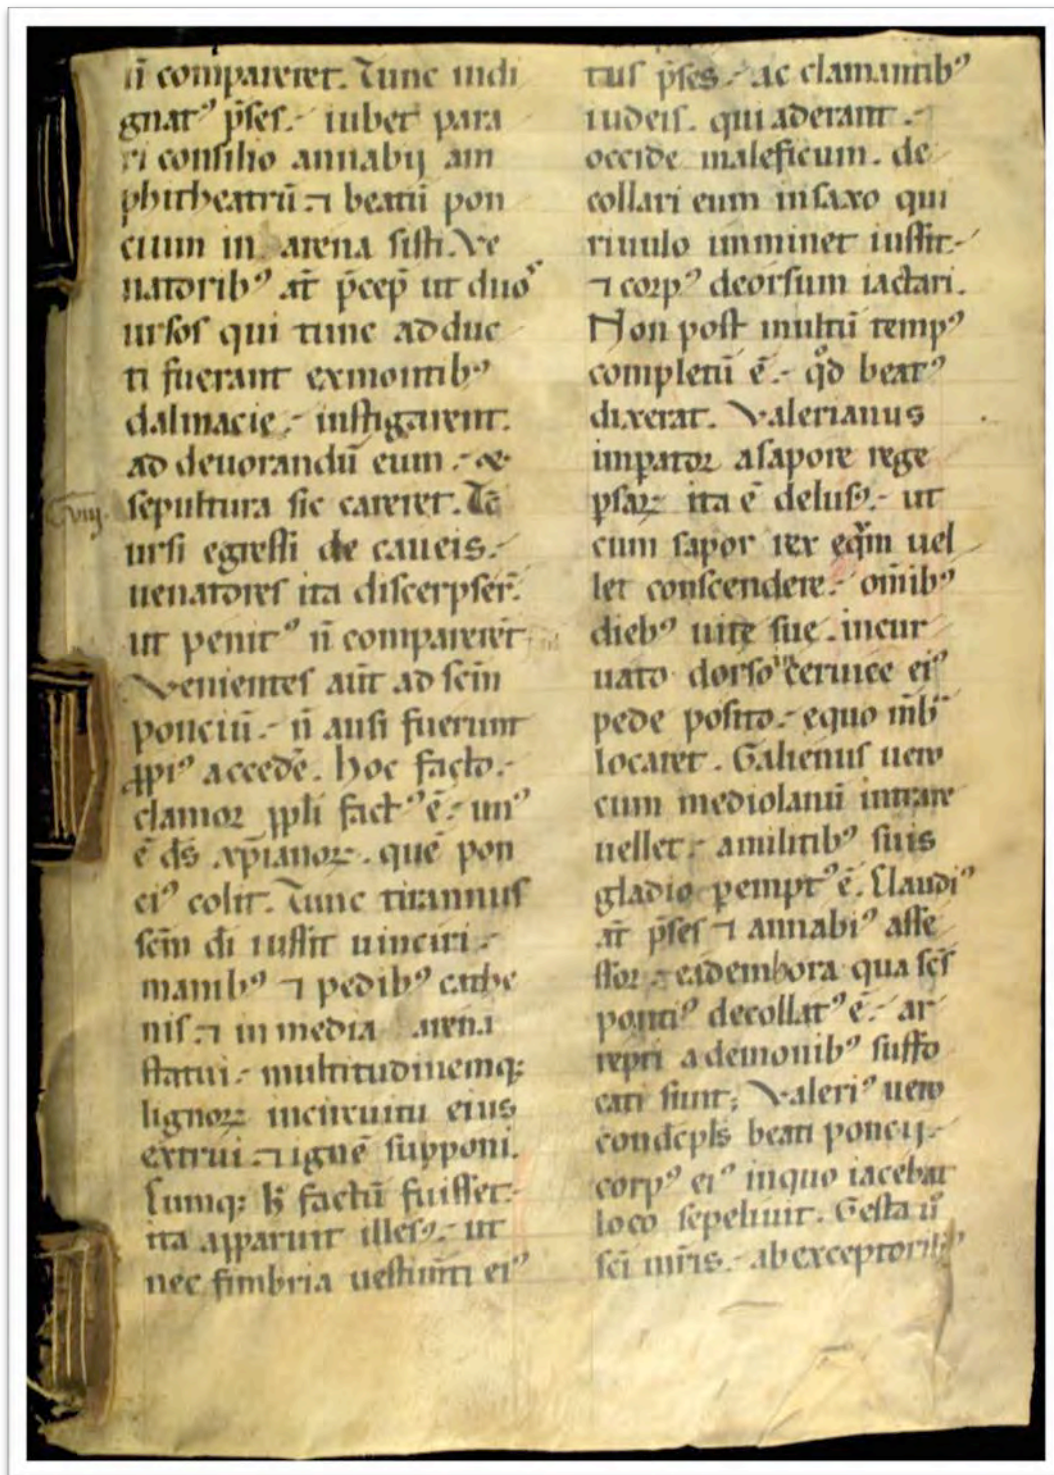 n̄ compareret. Tunc indi
gnatꝰ p̄ses. iubet para
ri consilio annabij am
phitheatrū ⁊ beatū pon
cium in arena sisti. Ve
natoribꝰ aū p̄cep̄ ut duos
ursos qui tunc adduc
ti fuerant exmontibꝰ
dalmacie. instigarent.
ad deuorandū eum.
sepultura sic careret. Tc̄
viij.
ursi egressi de caueis.
uenatores ita discerpser̄.
ut penitꝰ n̄ comparerēt
Venientes aūt ad scm̄
ponciū. n̄ ausi fuerunt
ꝓpiꝰ accedē̄. hoc facto.
clamor ppl̄i factꝰ ē. unꝰ
ē ds̄ xp̄ianoꝝ. quē pon
ciꝰ colit. Tunc tirannus
scm̄ dī iussit uinciri.
manibꝰ ⁊ pedibꝰ cathe
nis. ⁊ in media arena
statui. multitudinemqꝫ
lignoꝝ incircuitu eius
extrui. ⁊ ignē supponi.
Cumqꝫ h̄ factū fuisset.
ita apparuit illesꝰ. ut
nec fimbria uestim̄ti eiꝰ
tus p̄ses. ac clamantibꝰ
iudeis. qui aderant.
occide maleficum. de
collari eum insaxo qui
riuulo imminet iussit.
⁊ corpꝰ deorsum iactari.
Non post multū tempꝰ
completū ē. qd̄ beatꝰ
dixerat. Valerianus
imꝑator asapore rege
ꝑsaꝝ ita ē delusꝰ. ut
cum sapor rex eqͣm uel
let conscendere. om̄ibꝰ
diebꝰ uite sue. incur
uato dorso ceruice eiꝰ
pede posito. equo mb̄
locaret. Galienus uero
cum mediolanū intrare
uellet. amilitibꝰ suis
gladio ꝑemptꝰ ē. Claudiꝰ
aū p̄ses ⁊ annabiꝰ asse
ssor. eadem hora qua sc̄s
pontiꝰ decollatꝰ ē. ar
repti ademonibꝰ suffo
cati sunt; Valeriꝰ uero
condcp̄ls beati poncij.
corpꝰ eiꝰ inquo iacebat
loco sepeliuit. Gesta ū
sc̄i mr̄is. ab exceptoribꝰ